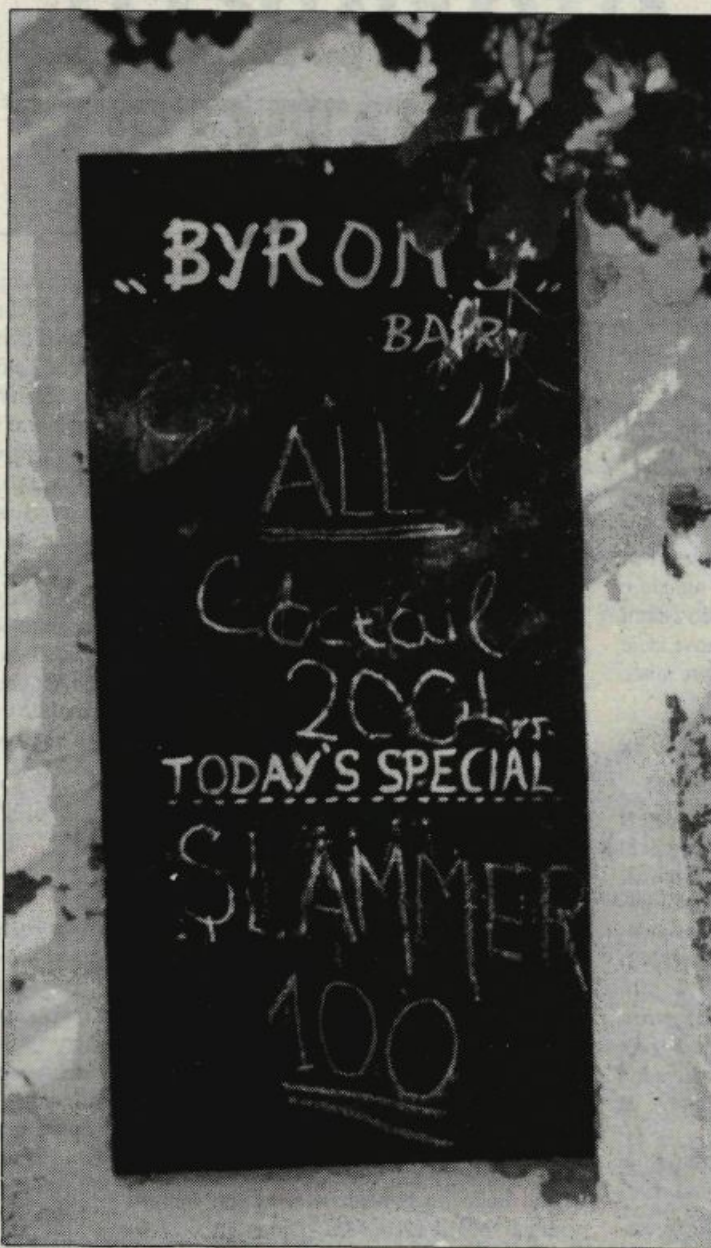 „BYRON'S”
BAR
ALL
Coctail
200drs.
TODAY'S SPECIAL
SLAMMER
100